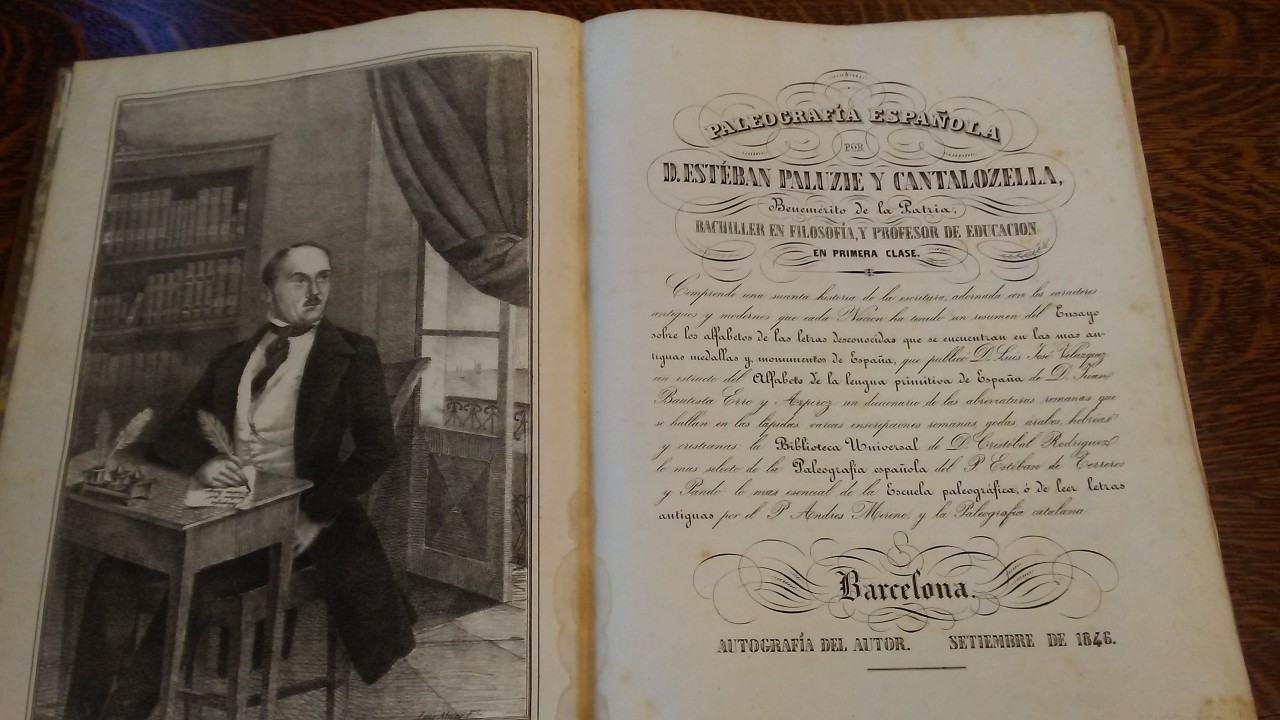 PALEOGRAFÍA ESPAÑOLA
POR
D. ESTÉBAN PALUZIE Y CANTALOZELLA,
Benemérito de la Patria,
BACHILLER EN FILOSOFÍA, Y PROFESOR DE EDUCACION
EN PRIMERA CLASE.
Comprende una historia de la escritura, adornada con los caracteres
antiguos y modernos que cada Nacion ha tenido un resumen del Ensayo
sobre los alfabetos de las letras desconocidas que se encuentran en las mas an-
tiguas medallas y monumentos de España, que publicó D. Luis José Velazquez
un estracto del Alfabeto de la lengua primitiva de España de D. Juan
Bautista Erro y Azpiroz un diccionario de las abreviaturas romanas que
se hallan en las lápidas varias inscripciones romanas, godas, árabes, hebréas
y cristianas la Biblioteca Universal de D. Cristobal Rodriguez
lo mas selecto de la Paleografía española del P. Estéban de Terreros
y Pando lo mas esencial de la Escuela paleográfica, ó de leer letras
antiguas por el P. Andres Merino, y la Paleografía catalana
Barcelona.
AUTOGRAFÍA DEL AUTOR. SETIEMBRE DE 1846.